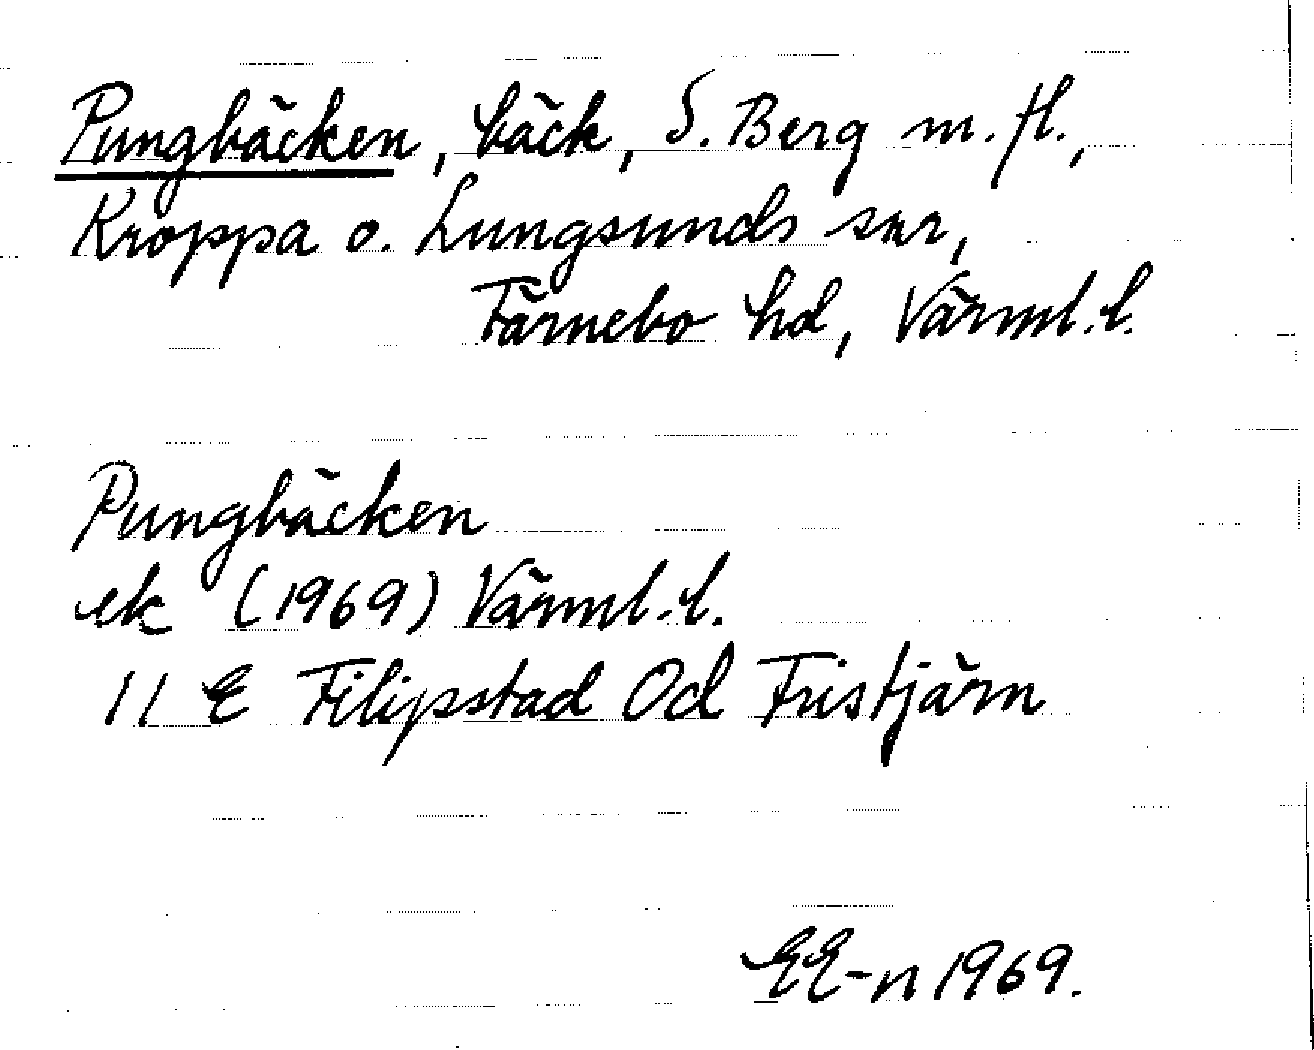 Pungbäcken, bäck, S. Berg m. fl.,
Kroppa o. Lungsunds snr,
Färnebo hd, Värml. l.
Pungbäcken
ek (1969) Värml. l.
11 E Filipstad Od Fristjärn
EE-n 1969.